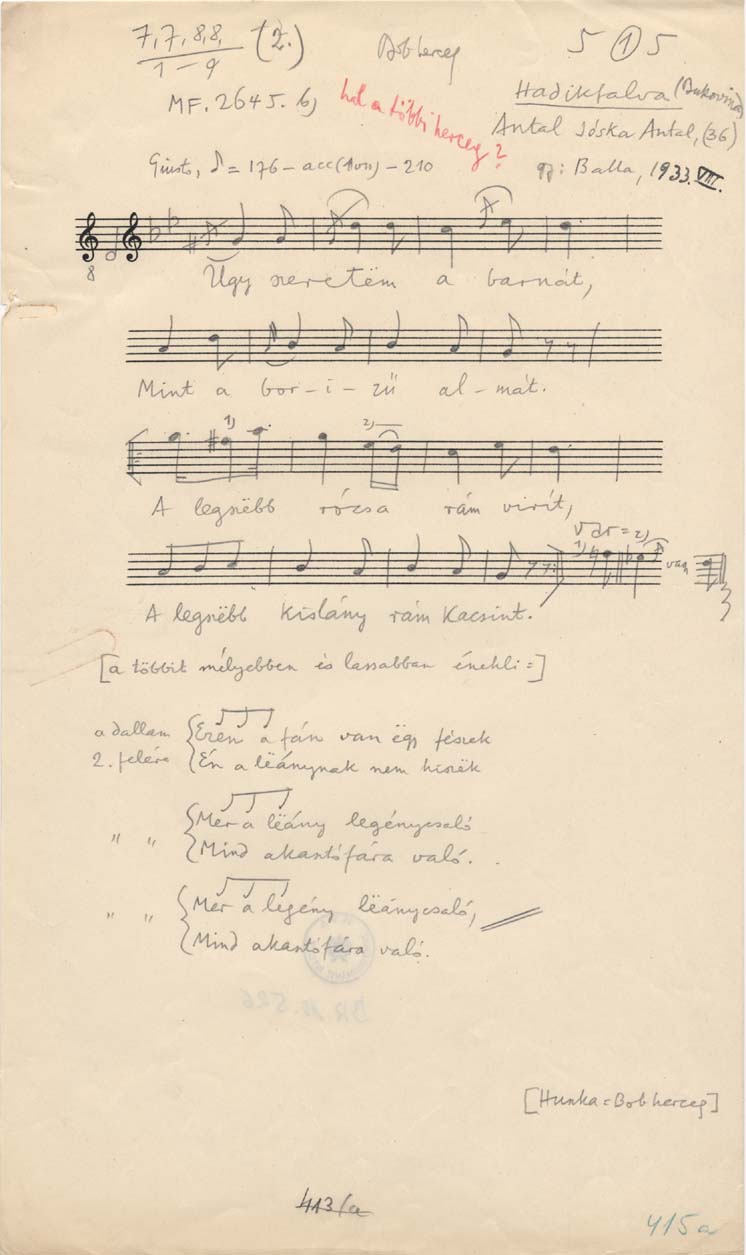 7, 7, 8, 8, (2.)
1 – 9
Bob herceg
5 (1) 5
MF. 2645. b)
hol a többi herceg?
Hadikfalva (Bukovina)
Antal Jóska Antal, (36)
Giusto, ♪ = 176 – acc() – 210
gy: Balla, 1933. VIII.
8
Úgy szeretëm a barnát,
Mint a bor – i – zü al – mát.
1) 2)
A legszëbb rózsa rám virít,
Var = 2)
1) vagy
A legszëbb kislány rám kacsint.
[a többit mélyebben és lassabban énekli =]
a dallam { Ezen a fán van ëgy fészek
2. felére { Én a lëánynak nem hiszëk
" " { Mer a lëány legénycsaló
{ Mind akasztófára való.
" " { Mer a legény lëánycsaló,
{ Mind akasztófára való.
BR. N. 526
[Hunka = Bob herceg]
413/a
415a